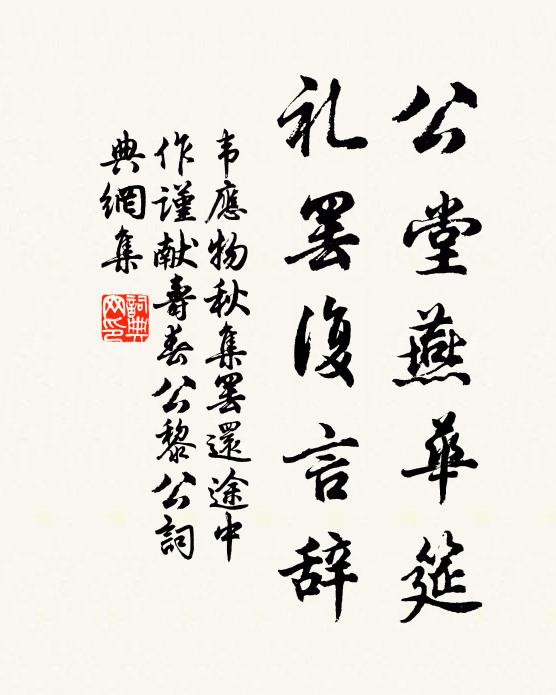 公堂燕華筵
礼罢復言辞
韦應物秋集罢還途中
作謹献壽春公黎公詞
典網集
詞典
网印